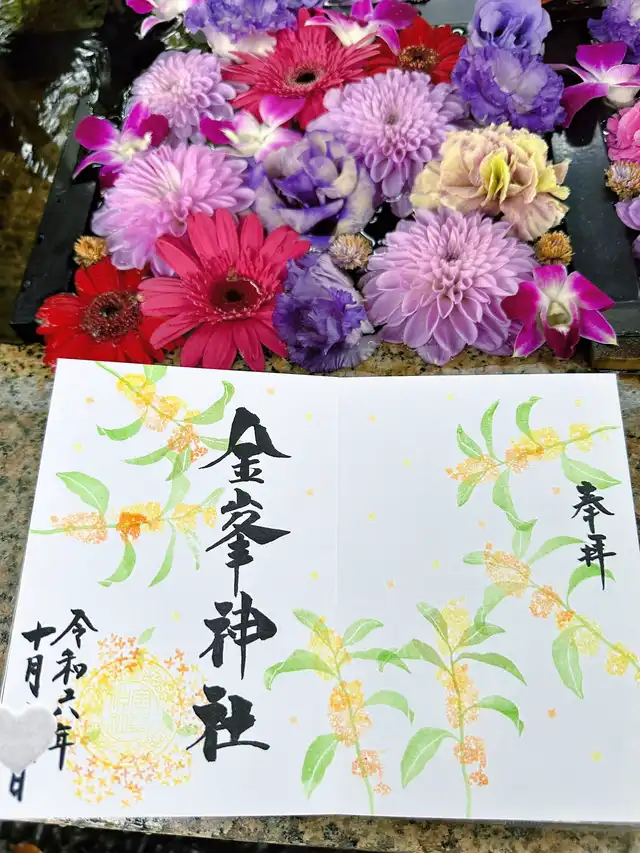 奉拝
金峯神社
令和六年
十月
日